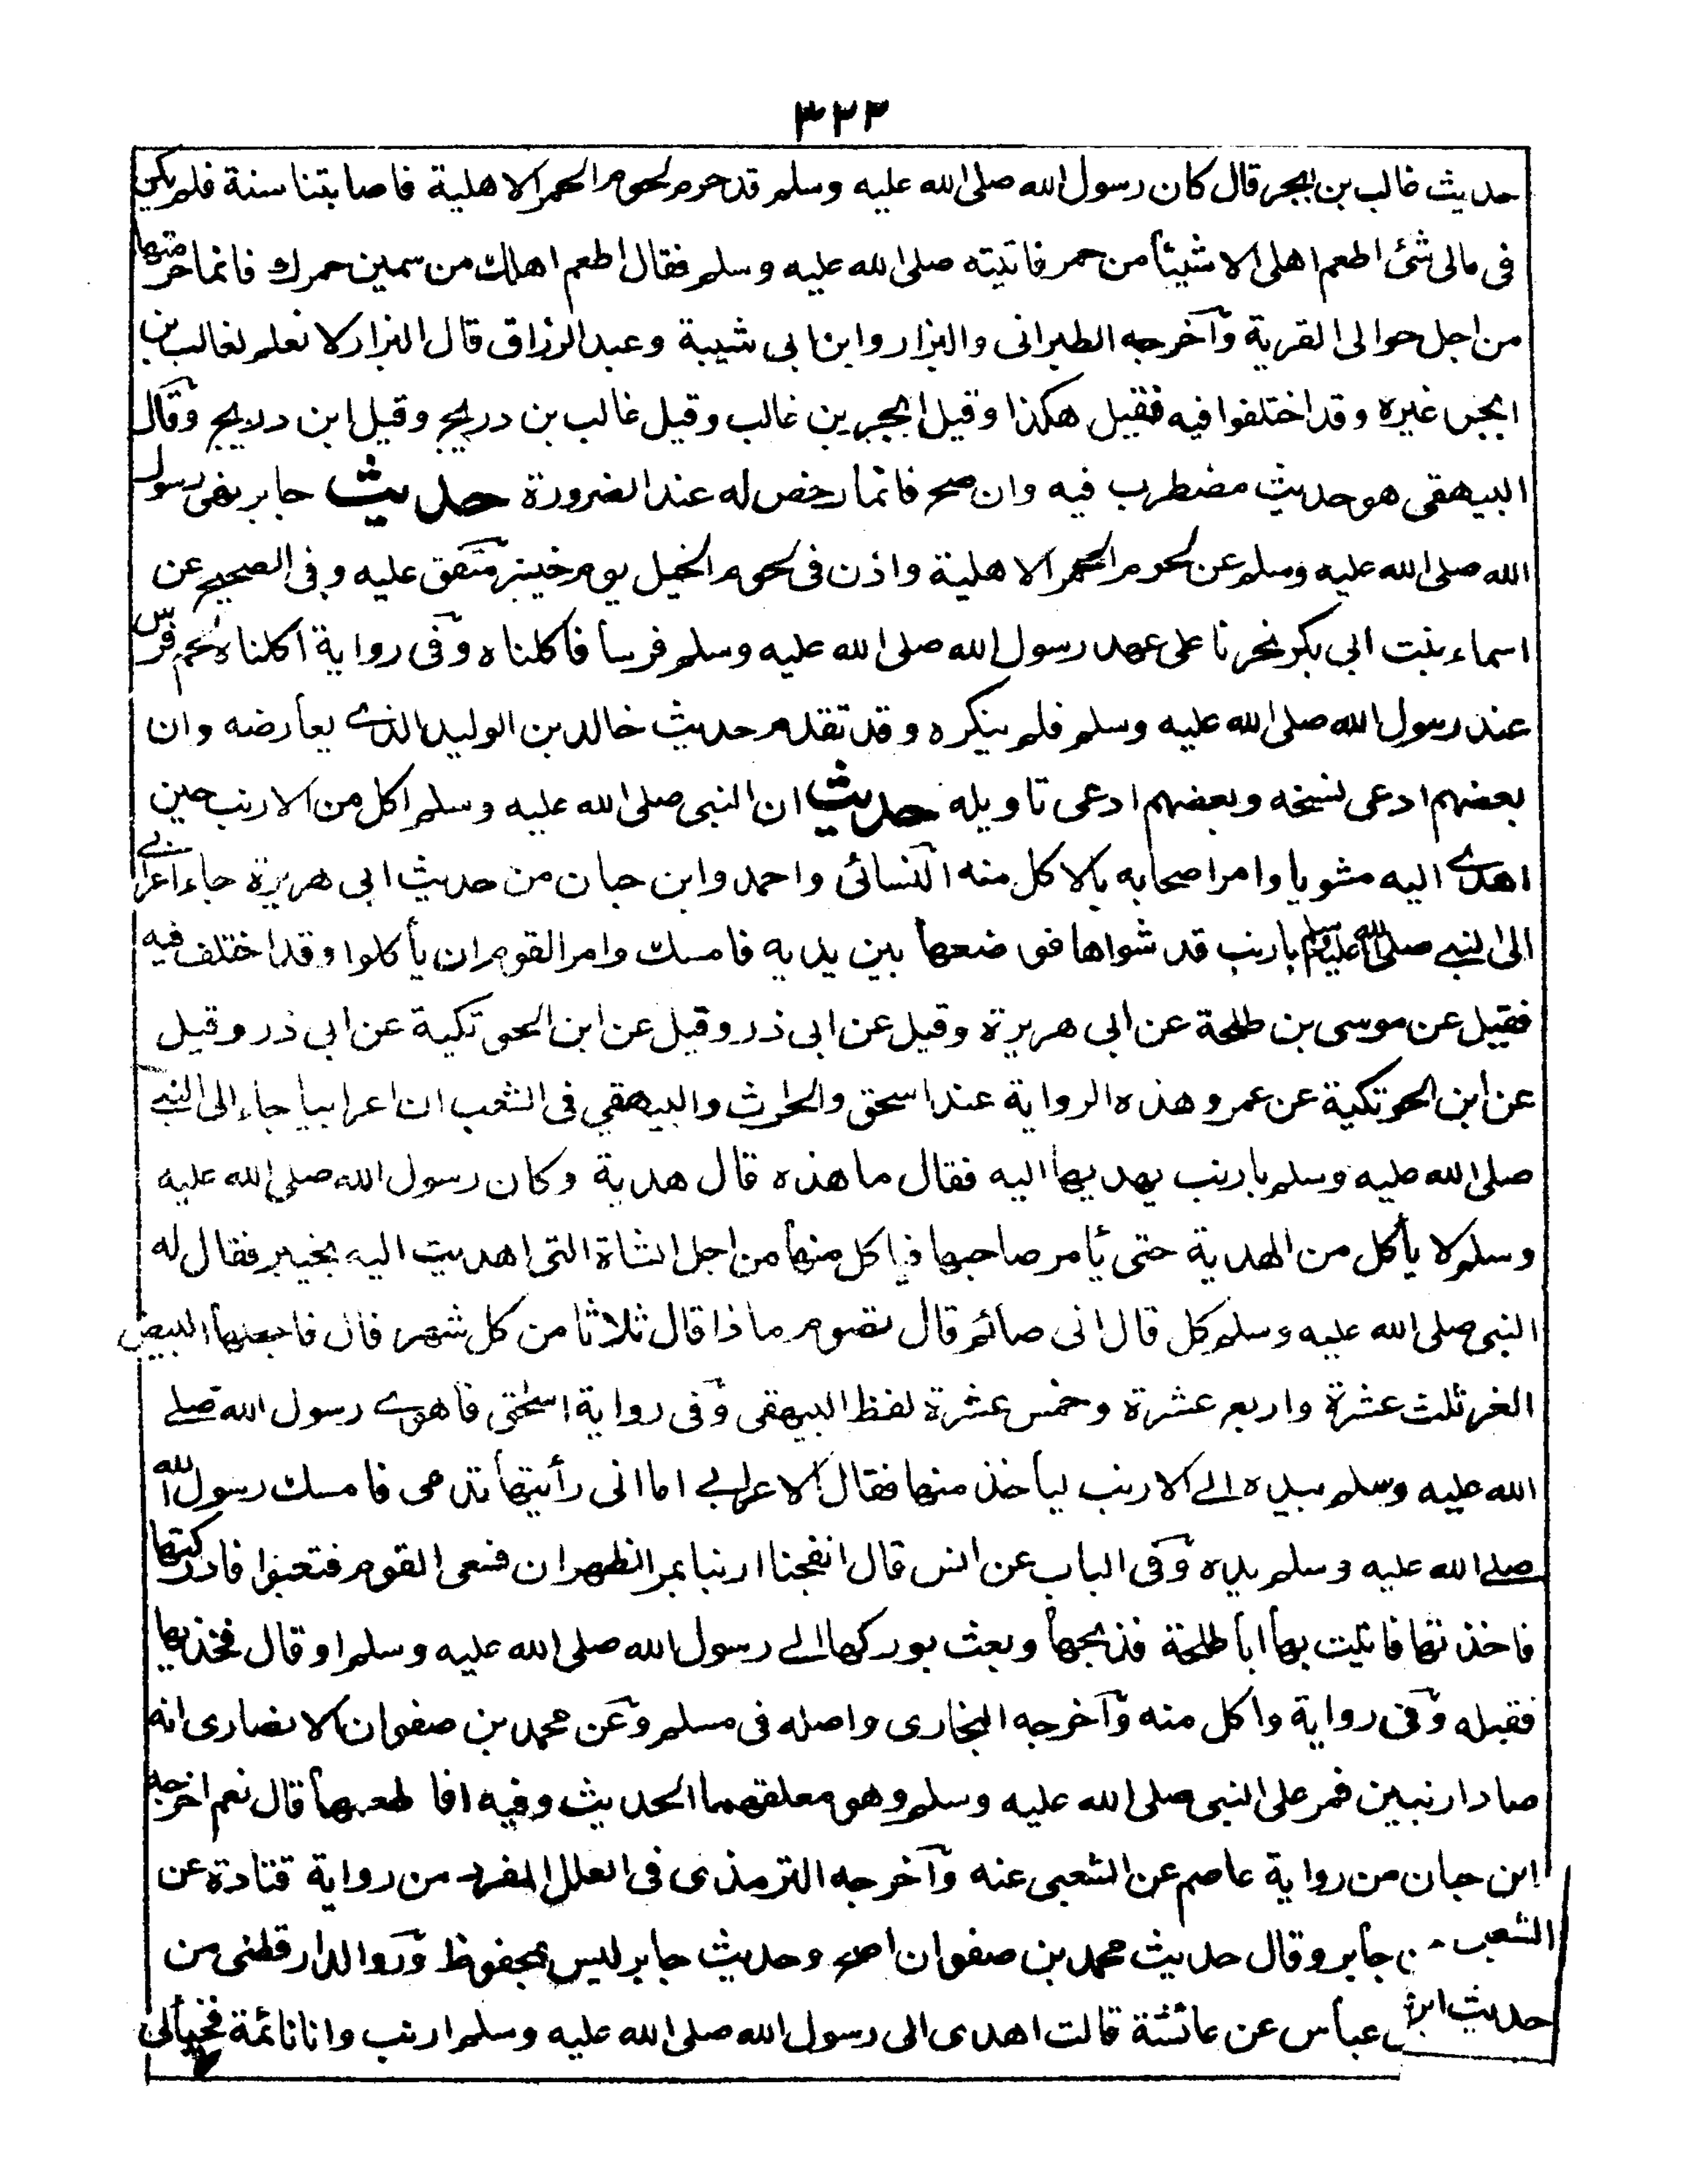 ٣٢٢
حديث غالب بن ابجر قال كان رسول الله صلى الله عليه وسلم قد حرم لحوم الحمر الاهلية فاصابتنا سنة فلم يكن
فى مالى شئ اطعم اهلى الا شيئا من حمر فاتيته صلى الله عليه وسلم فقال اطعم اهلك من سمين حمرك فانما حرمتها
من اجل حوالى القرية وآخرجه الطبرانى والبزار وابن ابى شيبة وعبد الرزاق قال البزار لا نعلم لغالب بن
ابجر غيره وقد اختلفوا فيه فقيل هكذا وقيل ابجر بن غالب وقيل غالب بن دريج وقيل ابن دلايج وقال
البيهقى هو حديث مضطرب فيه وان صح فانما رخص له عند الضرورة حديث جابر نهى رسول
الله صلى الله عليه وسلم عن لحوم الحمر الاهلية واذن فى لحوم الخيل يوم خيبر متفق عليه وفى الصحيح عن
اسماء بنت ابى بكر نحرنا على عهد رسول الله صلى الله عليه وسلم فرسا فاكلناه وفى رواية اكلناه لحم فرس
عند رسول الله صلى الله عليه وسلم فلم ينكره وقد تقدم حديث خالد بن الوليد الذے يعارضه وان
بعضهم ادعى نسخه وبعضهم ادعى تاويله حديث ان النبى صلى الله عليه وسلم اكل من الارنب حين
اهدے اليه مشويا وامر اصحابه بالاكل منه النسائى واحمد وابن حبان من حديث ابى هريرة جاء اعرابے
الى النبے صلى الله عليه وسلم بارنب قد شواها فوضعها بين يديه فامسك وامر القوم ان يأكلوا وقد اختلف فيه
فقيل عن موسى بن طلحة عن ابى هريرة وقيل عن ابى ذر وقيل عن ابن الحوتكية عن ابى ذر وقيل
عن ابن الحوتكية عن عمر وهذه الرواية عند اسحق والحرث والبيهقي فى الشعب ان اعرابيا جاء الى النبے
صلى الله عليه وسلم بارنب يهديها اليه فقال ما هذه قال هدية وكان رسول الله صلى الله عليه
وسلم لا يأكل من الهدية حتى يأمر صاحبها فياكل منها من اجل الشاة التى اهديت اليه بخيبر فقال له
النبى صلى الله عليه وسلم كل قال انى صائم قال تصوم ماذا قال ثلاثا من كل شهر قال فاجعلها البيض
الغر ثلث عشرة واربع عشرة وخمس عشرة لفظ البيهقى وفى رواية اسحق فاهوے رسول الله صلے
الله عليه وسلم بيده الے الارنب ليأخذ منها فقال الاعرابے اما انى رأيتها تدمى فامسك رسول الله
صلے الله عليه وسلم يده وفى الباب عن انس قال انفجنا ارنبا بمر الظهران فسعى القوم فتعبوا فادركتها
فاخذتها فاتيت بها ابا طلحة فذبحها وبعث بوركها الے رسول الله صلى الله عليه وسلم او قال فخذيها
فقبله وفى رواية واكل منه وآخرجه البخارى واصله فى مسلم وعن محمد بن صفوان الانصارى انه
صاد ارنبين فمر على النبى صلى الله عليه وسلم وهو معلقهما الحديث وفيه افاطعمها قال نعم اخرجه
ابن حبان من رواية عاصم عن الشعبى عنه وآخرجه الترمذى فى العلل المفرد من رواية قتادة عن
الشعبى عن جابر وقال حديث محمد بن صفوان اصح وحديث جابر ليس بمحفوظ وروى الدارقطنى من
حديث ابن عباس عن عائشة قالت اهدى الى رسول الله صلى الله عليه وسلم ارنب وانا نائمة فخبألى